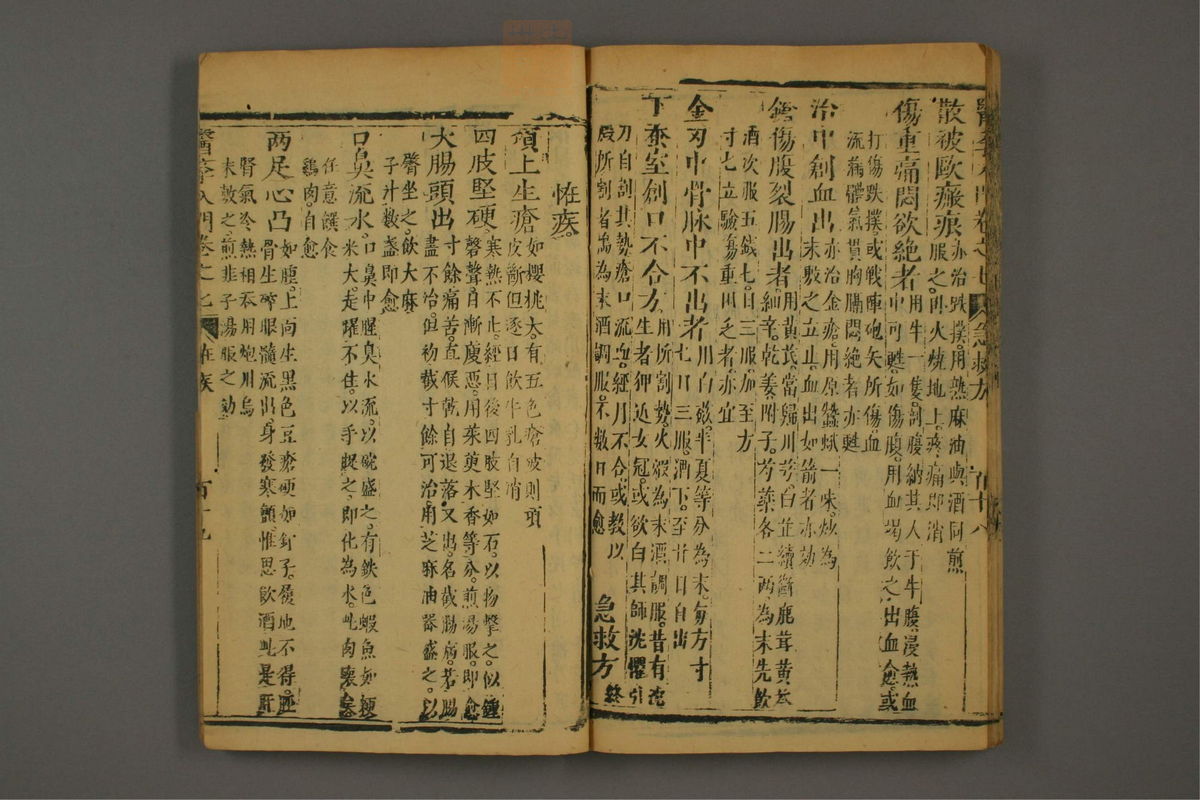 散被敺瘢痕亦治跌撲用熟麻油與酒同煎
服之臥火燒地上疼痛即消
傷重痛悶欲絕者用牛一隻剖腹納其人于牛腹浸熱血
中可甦如傷腹用血竭飲之出血愈或
打傷跌撲或戰陣砲矢所傷血
流滿體氣貫胸膈悶絕者亦甦
治中創血出亦治金瘡用原蠶蛾一味炒為
末敷之立止血出如箭者亦効
傷腹裂腸出者用黃芪當歸川芎白芷續斷鹿茸黃芩
細辛乾姜附子芍藥各二兩為末先飲
酒次服五錢七日三服加至方
寸七立驗傷重困乏者亦宜
金刃中骨脉中不出者用白蘞半夏等分為末每方寸
七日三服酒下至廿日自出
下蚕室創口不合方用所割勢火煅為末酒調服昔有
生者狎近女冠或欲白其師沈懼引
刀自割其勢瘡口流血經月不合或教以
所割者為末酒調服不數日而愈
急救方終
恠疾
項上生瘡如櫻桃大有五色瘡破則項
皮斷但逐日飲牛乳自消
四肢堅硬寒熱不止經日後四肢堅如石以物擊之似鍾
磬聲日漸瘦惡用茱萸木香等分煎湯服即愈
大腸頭出寸餘痛苦直候乾自退落又出名截腸病若腸
盡不治但初截寸餘可治用芝麻油器盛之以
臀坐之飲大麻
子汁數盞即愈
口鼻流水口鼻中腥臭水流以碗盛之有鉄色蝦魚如粳
米大走躍不住以手捉之即化為水此肉壞
任意饌食
鷄肉自愈
兩足心凸如腫上面生黑色豆瘡硬如釘子履地不得
骨生碎眼髓流出身發寒顫惟思飲酒此是肝
腎氣冷熱相吞用炮川烏
末敷之煎韭子湯服之効